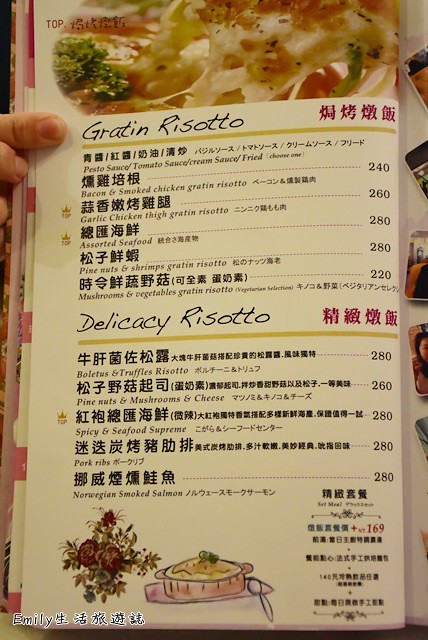 TOP 焗烤燉飯
Gratin Risotto 焗烤燉飯
青醬/紅醬/奶油/清炒 バジルソース/トマトソース/クリームソース/フリード
Pesto Sauce/Tomato Sauce/cream Sauce/Fried (choose one)
燻雞培根 240
Bacon & Smoked chicken gratin risotto ベーコン&燻製鶏肉
蒜香嫩烤雞腿 260
TOP Garlic Chicken thigh gratin risotto ニンニク鶏もも肉
總匯海鮮 280
TOP Assorted Seafood 統合さ海産物
松子鮮蝦 280
Pine nuts & shrimps gratin risotto 松のナッツ海老
時令鮮蔬野菇(可全素 蛋奶素) 220
Mushrooms & vegetables gratin risotto (Vegetarian Selection) キノコ&野菜(ベジタリアンセレク
Delicacy Risotto 精緻燉飯
牛肝菌佐松露 大塊牛肝菌菇搭配珍貴的松露醬,風味獨特 280
Boletus &Truffles Risotto ポルチーニ&トリュフ
松子野菇起司(蛋奶素) 濃郁起司,拌炒香甜野菇以及松子,一等美味 260
Pine nuts & Mushrooms & Cheese マツノミ&キノコ&チーズ
紅袍總匯海鮮(微辣) 大紅袍獨特香氣搭配多樣新鮮海產,保證值得一試 280
TOP Spicy & Seafood Supreme こがら&シーフードセンター
迷迭炭烤豬肋排 美式炭烤肋排,多汁軟嫩,美妙經典,吮指回味 280
Pork ribs ポークリブ
挪威煙燻鮭魚 280
Norwegian Smoked Salmon ノルウェースモークサーモン
精緻套餐
Set Meal デラックスセット
燉飯套餐價+NT 169
前湯:當日主廚特調濃湯
+
餐前點心:法式手工烘培麵包
+
140元冷熱飲品任選
+
甜點:每日限做手工甜點
Emily生活旅遊誌